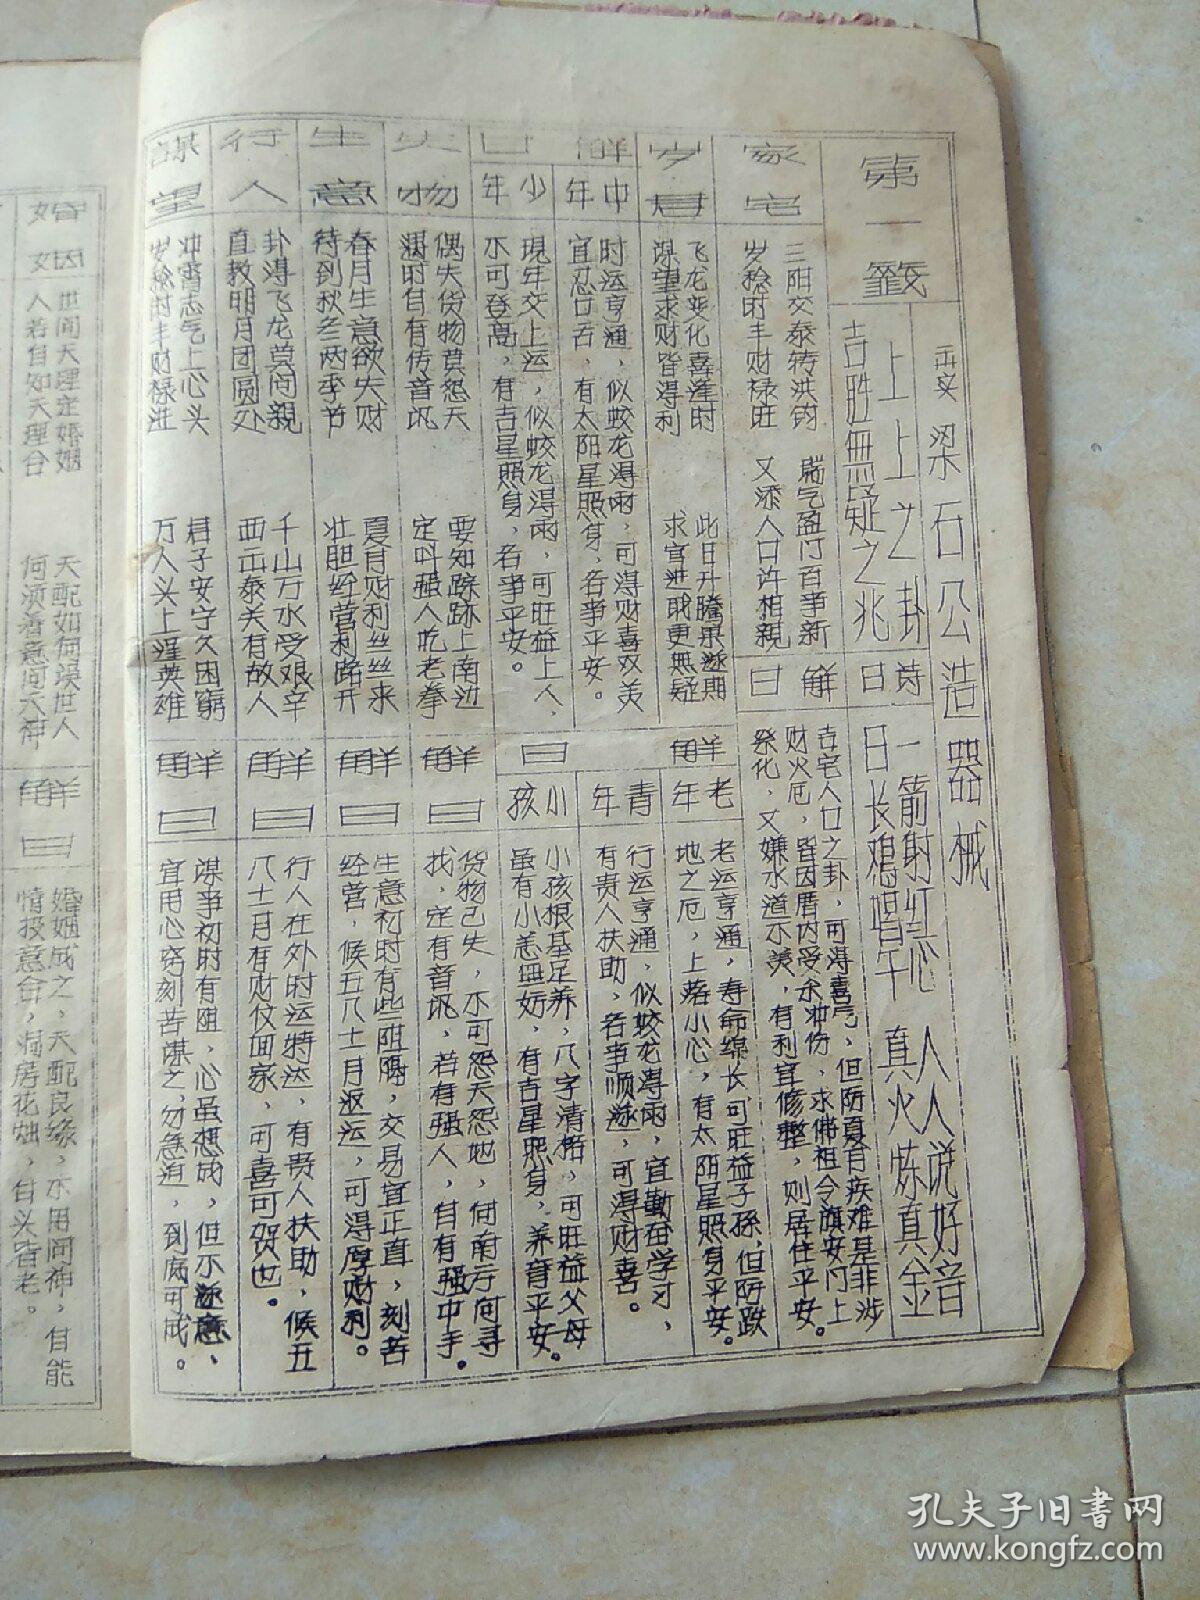 第一籤
梁石公造器械
上上之卦
吉胜無疑之兆
诗曰
一箭射红心 人人说好音
日长鸡唱午 真火炼真金
家宅
三阳交泰转洪钧 瑞气盈门百事新
岁稔时丰财禄旺 又添人口许相親
解曰
吉宅人口之卦，可得喜气，但阴夏有疾难是非涉
财火厄，皆因厝内受余冲伤，求佛祖令旗安门上
祭化，又嫌水道不美，有利宜修整，则居住平安。
岁君
飞龙变化喜逢时 此日升腾果遂期
谋望求财皆得利 求官进职更無疑
解曰
中年
时运亨通，似蛟龙得雨，可得财喜双美
宜忍口舌，有太阳星照身，各事平安。
少年
现年交上运，似蛟龙得雨，可旺益上人，
不可登高，有吉星照身，各事平安。
解曰
老年
老运亨通，寿命绵长可旺益子孫，但防跌
地之厄，上落小心，有太阴星照身平安。
青年
行运亨通，似蛟龙得雨，宜勤苦学习，
有贵人扶助，各事顺遂，可得财喜。
小孩
小孩根基足养，八字清楷，可旺益父母
虽有小恙無妨，有吉星照身，养育平安。
失物
偶失货物莫怨天 要知踪跡上南边
满时自有传音讯 定叫强人吃老拳
解曰
货物已失，不可怨天怨地，向南方问寻
找，定有音讯，若有强人，自有强中手。
生意
春月生意欲失财 夏月财利丝丝来
待到秋冬两季节 壮胆经营利路开
解曰
生意初时有些阻隔，交易宜正直，刻苦
经营，候五八十月返运，可得厚财利。
行人
卦得飞龙莫问親 千山万水受艰辛
直教明月团圆处 西出泰关有故人
解曰
行人在外时运特达，有贵人扶助，候五
八十月有财仪回家，可喜可贺也。
谋望
冲霄志气上心头 君子安守久困窮
岁稔时丰财禄进 万人头上逞英雄
解曰
谋事初时有阻，心虽想成，但不遂意，
宜用心窍刻苦谋之，勿急迫，到底可成。
婚姻
世间天理定婚姻 天配如何误世人
人若自知天理合 何须着意问大神
解曰
婚姻成之，天配良缘，不用问神，自能
情投意合，洞房花烛，白头皆老。
孔夫子旧书网
www.kongfz.com